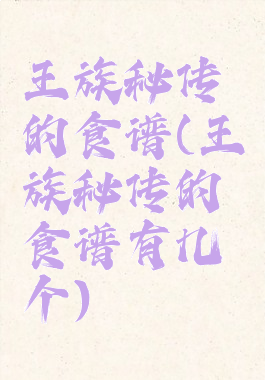 王族秘传
的食谱(王
族秘传的
食谱有几
个)